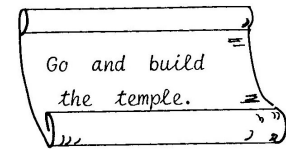 Go and build
the temple.